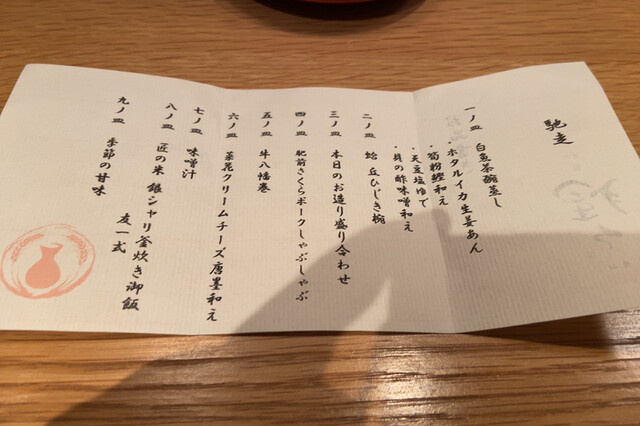 馳走
一ノ皿 白魚茶碗蒸し
・ホタルイカ生姜あん
・筍粉鰹和え
・天豆塩ゆで
・貝の酢味噌和え
二ノ皿 蛤 丘ひじき椀
三ノ皿 本日のお造り盛り合わせ
四ノ皿 肥前さくらポークしゃぶしゃぶ
五ノ皿 牛八幡巻
六ノ皿 菜花クリームチーズ唐墨和え
七ノ皿 味噌汁
八ノ皿 匠の米 銀シャリ釜炊き御飯
友一式
九ノ皿 季節の甘味